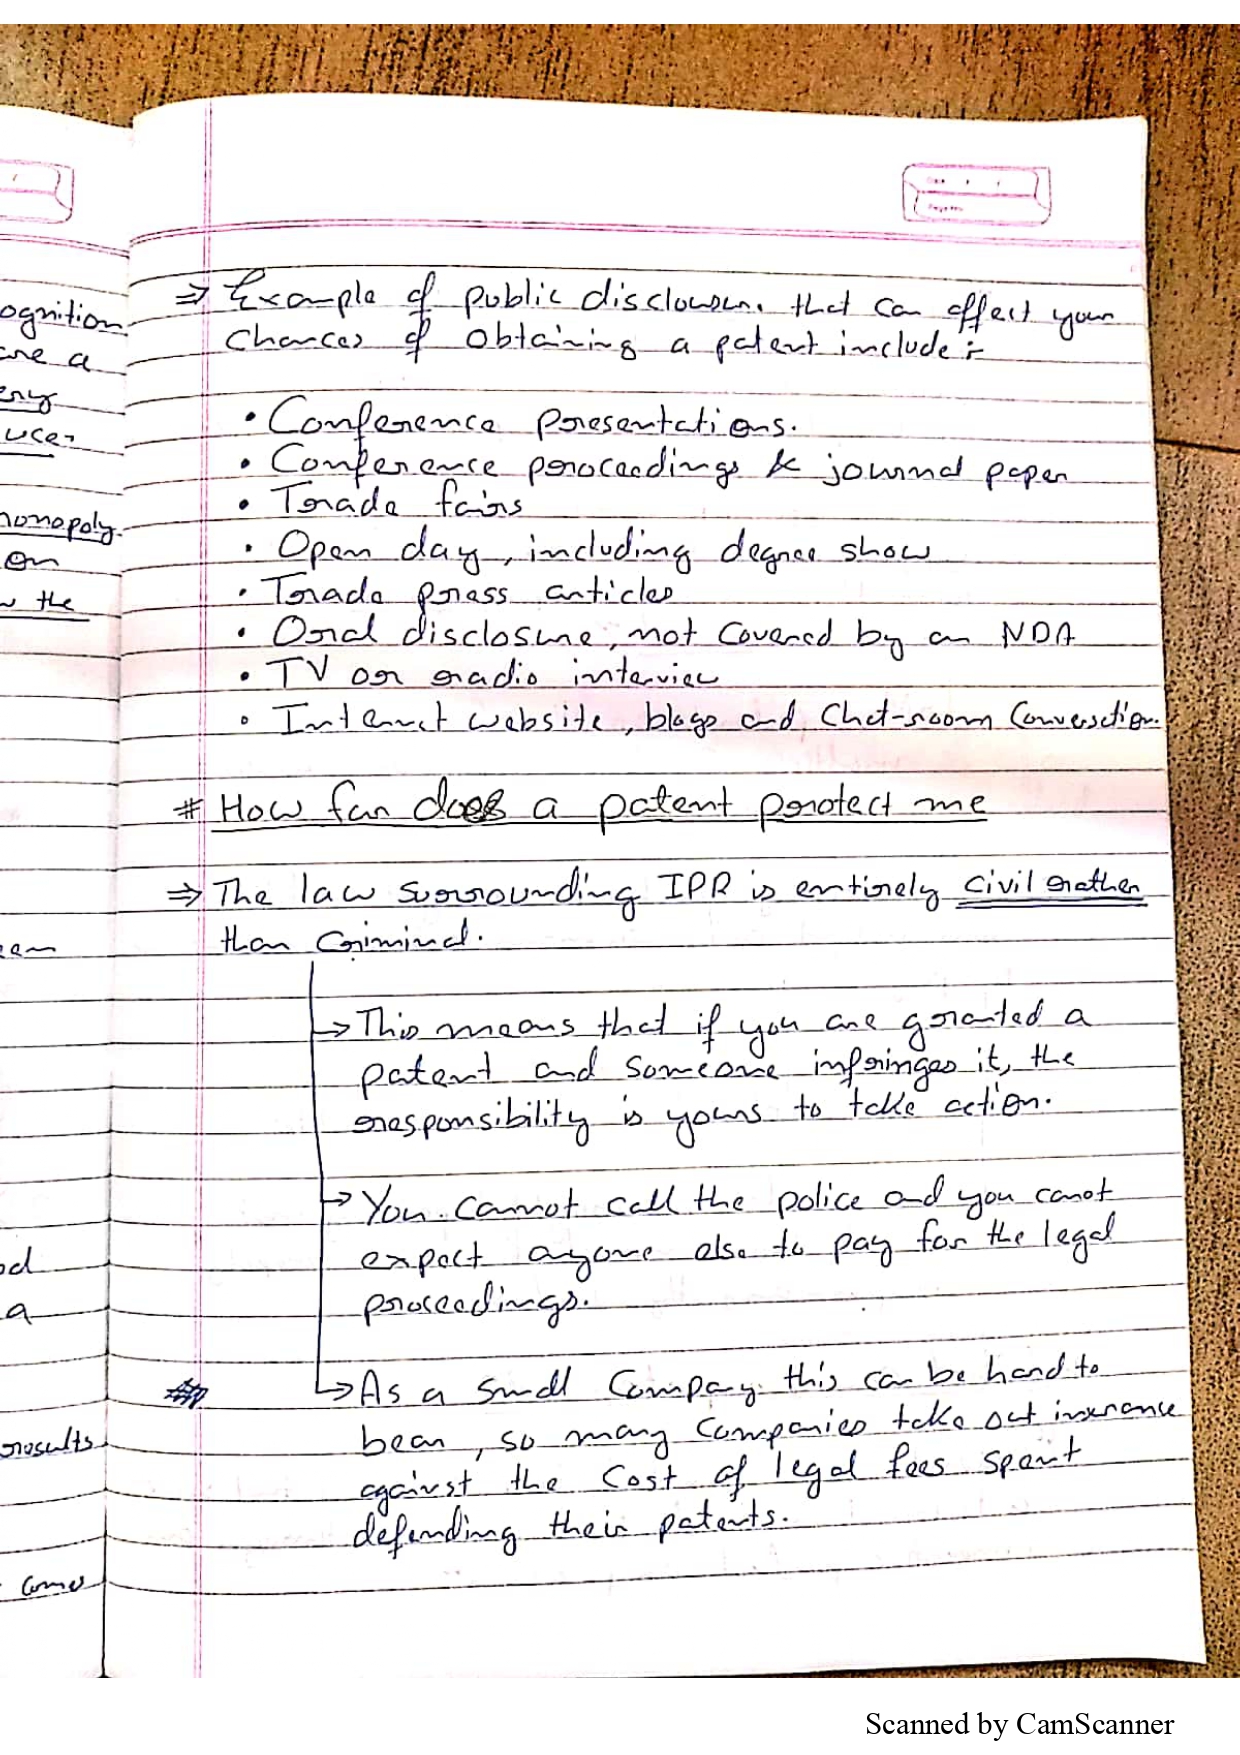 ognition
are a
ery
uce-
monopoly.
on
w the
od
a
results
comes
⇒ Example of public disclosure, that can affect your
Chances of Obtaining a patent include :-
• Conference presentations.
• Conference proceedings & journal paper
• Trade fairs
• Open day, including degree show
• Trade press articles
• Oral disclosure, not Covered by an NDA
• TV or radio interview
• Internet website, blogs and Chat-room Conversation.
# How far does a patent protect me
⇒ The law surrounding IPR is entirely civil rather
than Criminal.
→ This means that if you are granted a
patent and someone infringes it, the
responsibility is yours to take action.
→ You cannot call the police and you canot
expect anyone else to pay for the legal
proceedings.
→ As a small Company this can be hard to
bear, so many Companies take out insurance
against the Cost of legal fees spent
defending their patents.
Scanned by CamScanner